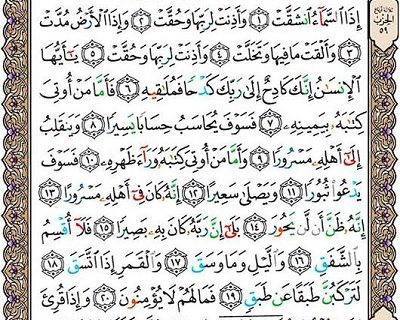 إِذَا ٱلسَّمَآءُ ٱنشَقَّتْ ١ وَأَذِنَتْ لِرَبِّهَا وَحُقَّتْ ٢ وَإِذَا ٱلْأَرْضُ مُدَّتْ
٣ وَأَلْقَتْ مَا فِيهَا وَتَخَلَّتْ ٤ وَأَذِنَتْ لِرَبِّهَا وَحُقَّتْ ٥ يَٰٓأَيُّهَا
ٱلْإِنسَٰنُ إِنَّكَ كَادِحٌ إِلَىٰ رَبِّكَ كَدْحًا فَمُلَٰقِيهِ ٦ فَأَمَّا مَنْ أُوتِىَ
كِتَٰبَهُۥ بِيَمِينِهِۦ ٧ فَسَوْفَ يُحَاسَبُ حِسَابًا يَسِيرًا ٨ وَيَنقَلِبُ
إِلَىٰٓ أَهْلِهِۦ مَسْرُورًا ٩ وَأَمَّا مَنْ أُوتِىَ كِتَٰبَهُۥ وَرَآءَ ظَهْرِهِۦ ١٠ فَسَوْفَ
يَدْعُوا۟ ثُبُورًا ١١ وَيَصْلَىٰ سَعِيرًا ١٢ إِنَّهُۥ كَانَ فِىٓ أَهْلِهِۦ مَسْرُورًا ١٣
إِنَّهُۥ ظَنَّ أَن لَّن يَحُورَ ١٤ بَلَىٰٓ إِنَّ رَبَّهُۥ كَانَ بِهِۦ بَصِيرًا ١٥ فَلَآ أُقْسِمُ
بِٱلشَّفَقِ ١٦ وَٱلَّيْلِ وَمَا وَسَقَ ١٧ وَٱلْقَمَرِ إِذَا ٱتَّسَقَ ١٨
لَتَرْكَبُنَّ طَبَقًا عَن طَبَقٍ ١٩ فَمَا لَهُمْ لَا يُؤْمِنُونَ ٢٠ وَإِذَا قُرِئَ
الحزب
٥٩